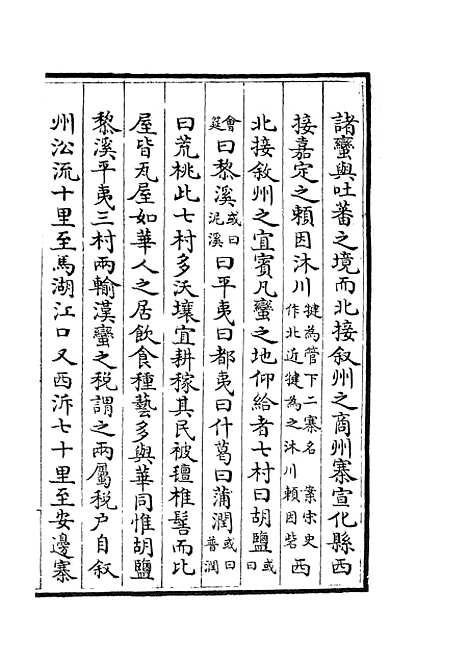 諸蠻與吐蕃之境而北接叙州之商州寨宣化縣西
接嘉定之賴因沐川犍為管下二寨名 案宋史作北近犍為之沐川賴因砦西
北接敘州之宜賓凡蠻之地仰給者七村曰胡鹽或曰
會筵曰黎溪或曰泥溪曰平夷曰都夷曰什葛曰蒲潤或曰普潤
曰荒桃此七村多沃壤宜耕稼其民被氊椎髻而比
屋皆瓦屋如華人之居飲食種藝多與華同惟胡鹽
黎溪平夷三村兩輸漢蠻之税謂之兩屬税户自叙
州㳂流十里至馬湖江口又西泝七十里至安邊寨